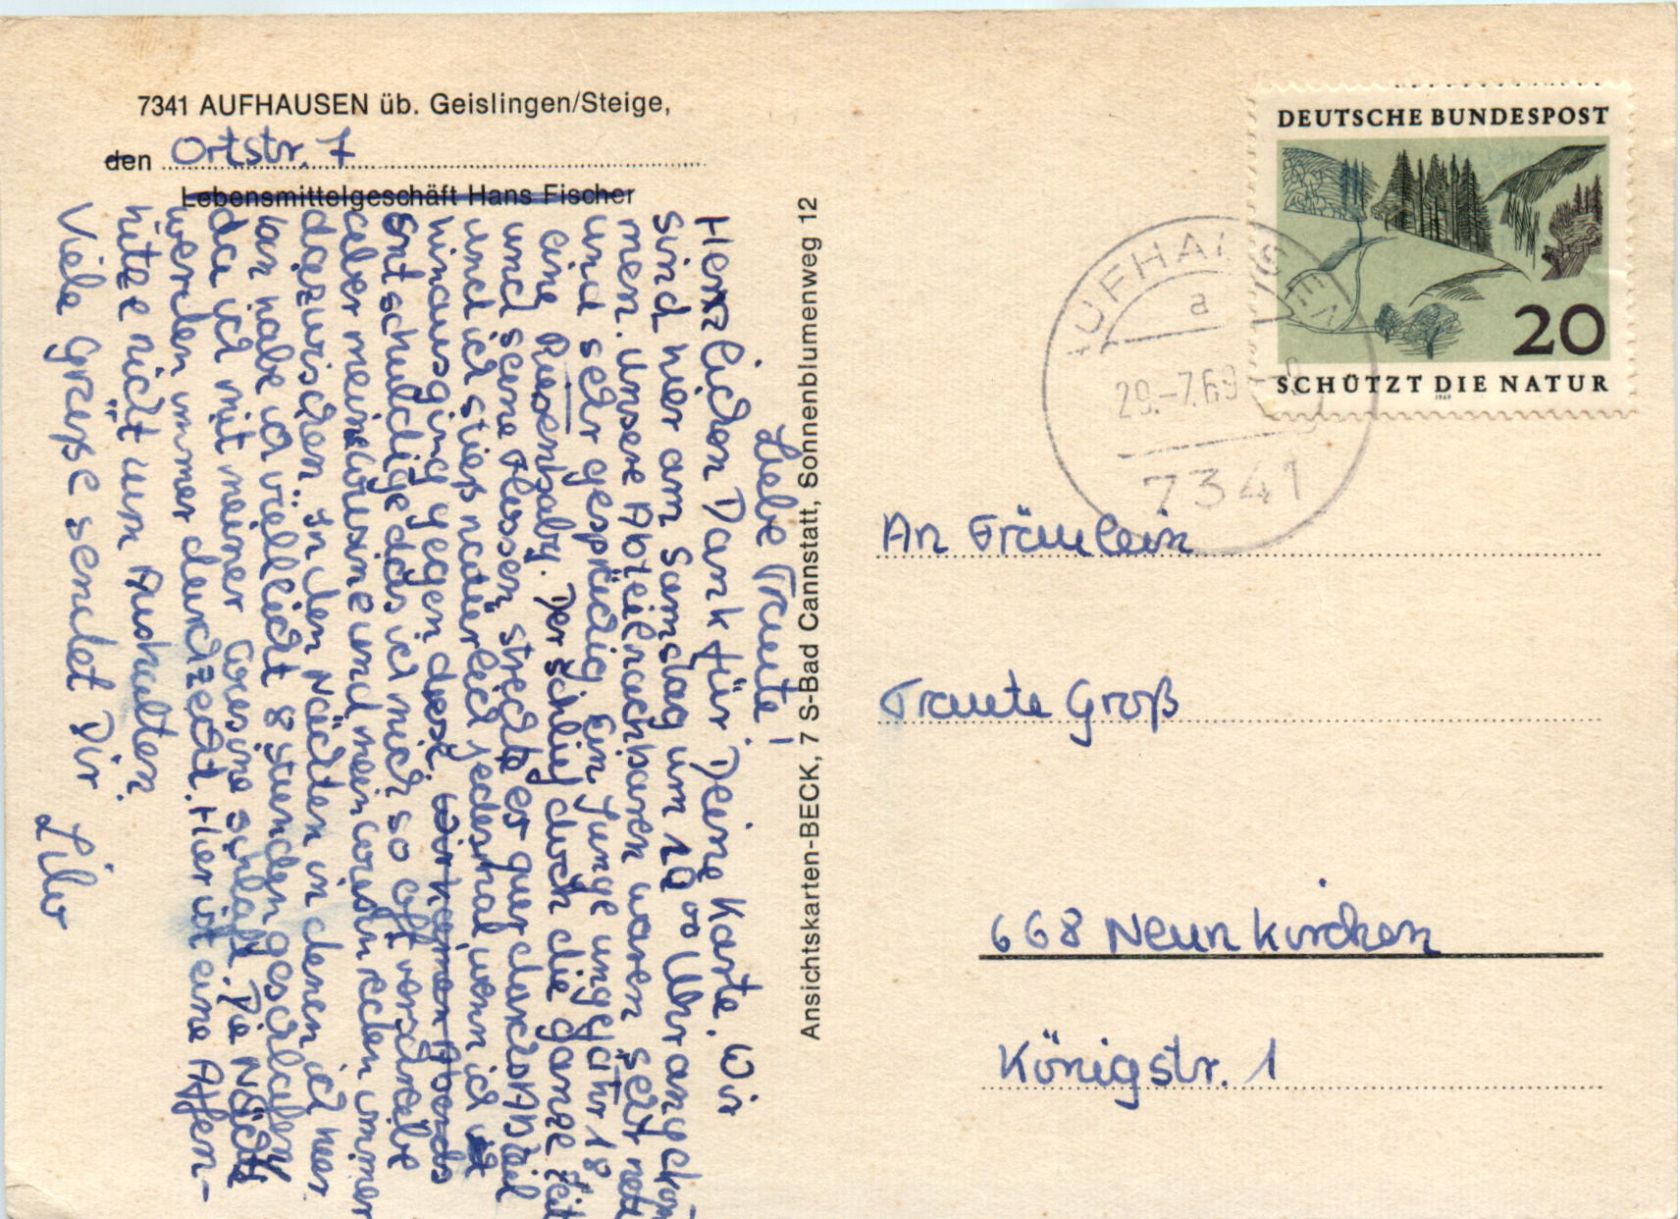 7341 AUFHAUSEN üb. Geislingen/Steige,
den Ortstr. 7
Lebensmittelgeschäft Hans Fischer
Liebe Traute!
Herzlichen Dank für Deine Karte. Wir
sind hier am Samstag um 10 00 Uhr angekom
men. Unsere Abteilnachbaren waren sehr nett
und sehr gesprächig. Ein Junge ungefähr 18
eine Riesenbaby. Der schlief durch die ganze Zeit
und seine Flossen streckte er quer durchs Abteil
und ich stieß natürlich jedesmal wenn ich
hinausging gegen. Wir kamen Abends
Entschuldige das ich mich so oft verschreibe
aber meine und mein reden immer
dazwischen. In den Nächten in denen ich hier
bin habe ich vielleicht 8 Stunden geschlafen
da ich mit meiner Cousine schlafe. Die Nächte
werden immer durchzecht. Hier ist eine Affen-
hitze nicht um Aushalten.
Viele Grüße sendet Dir
Lilo
Ansichtskarten-BECK, 7 S-Bad Cannstatt, Sonnenblumenweg 12
DEUTSCHE BUNDESPOST
20
SCHÜTZT DIE NATUR
1969
a
29.-7.69
7341
An Fräulein
Traute Groß
668 Neunkirchen
Königstr. 1